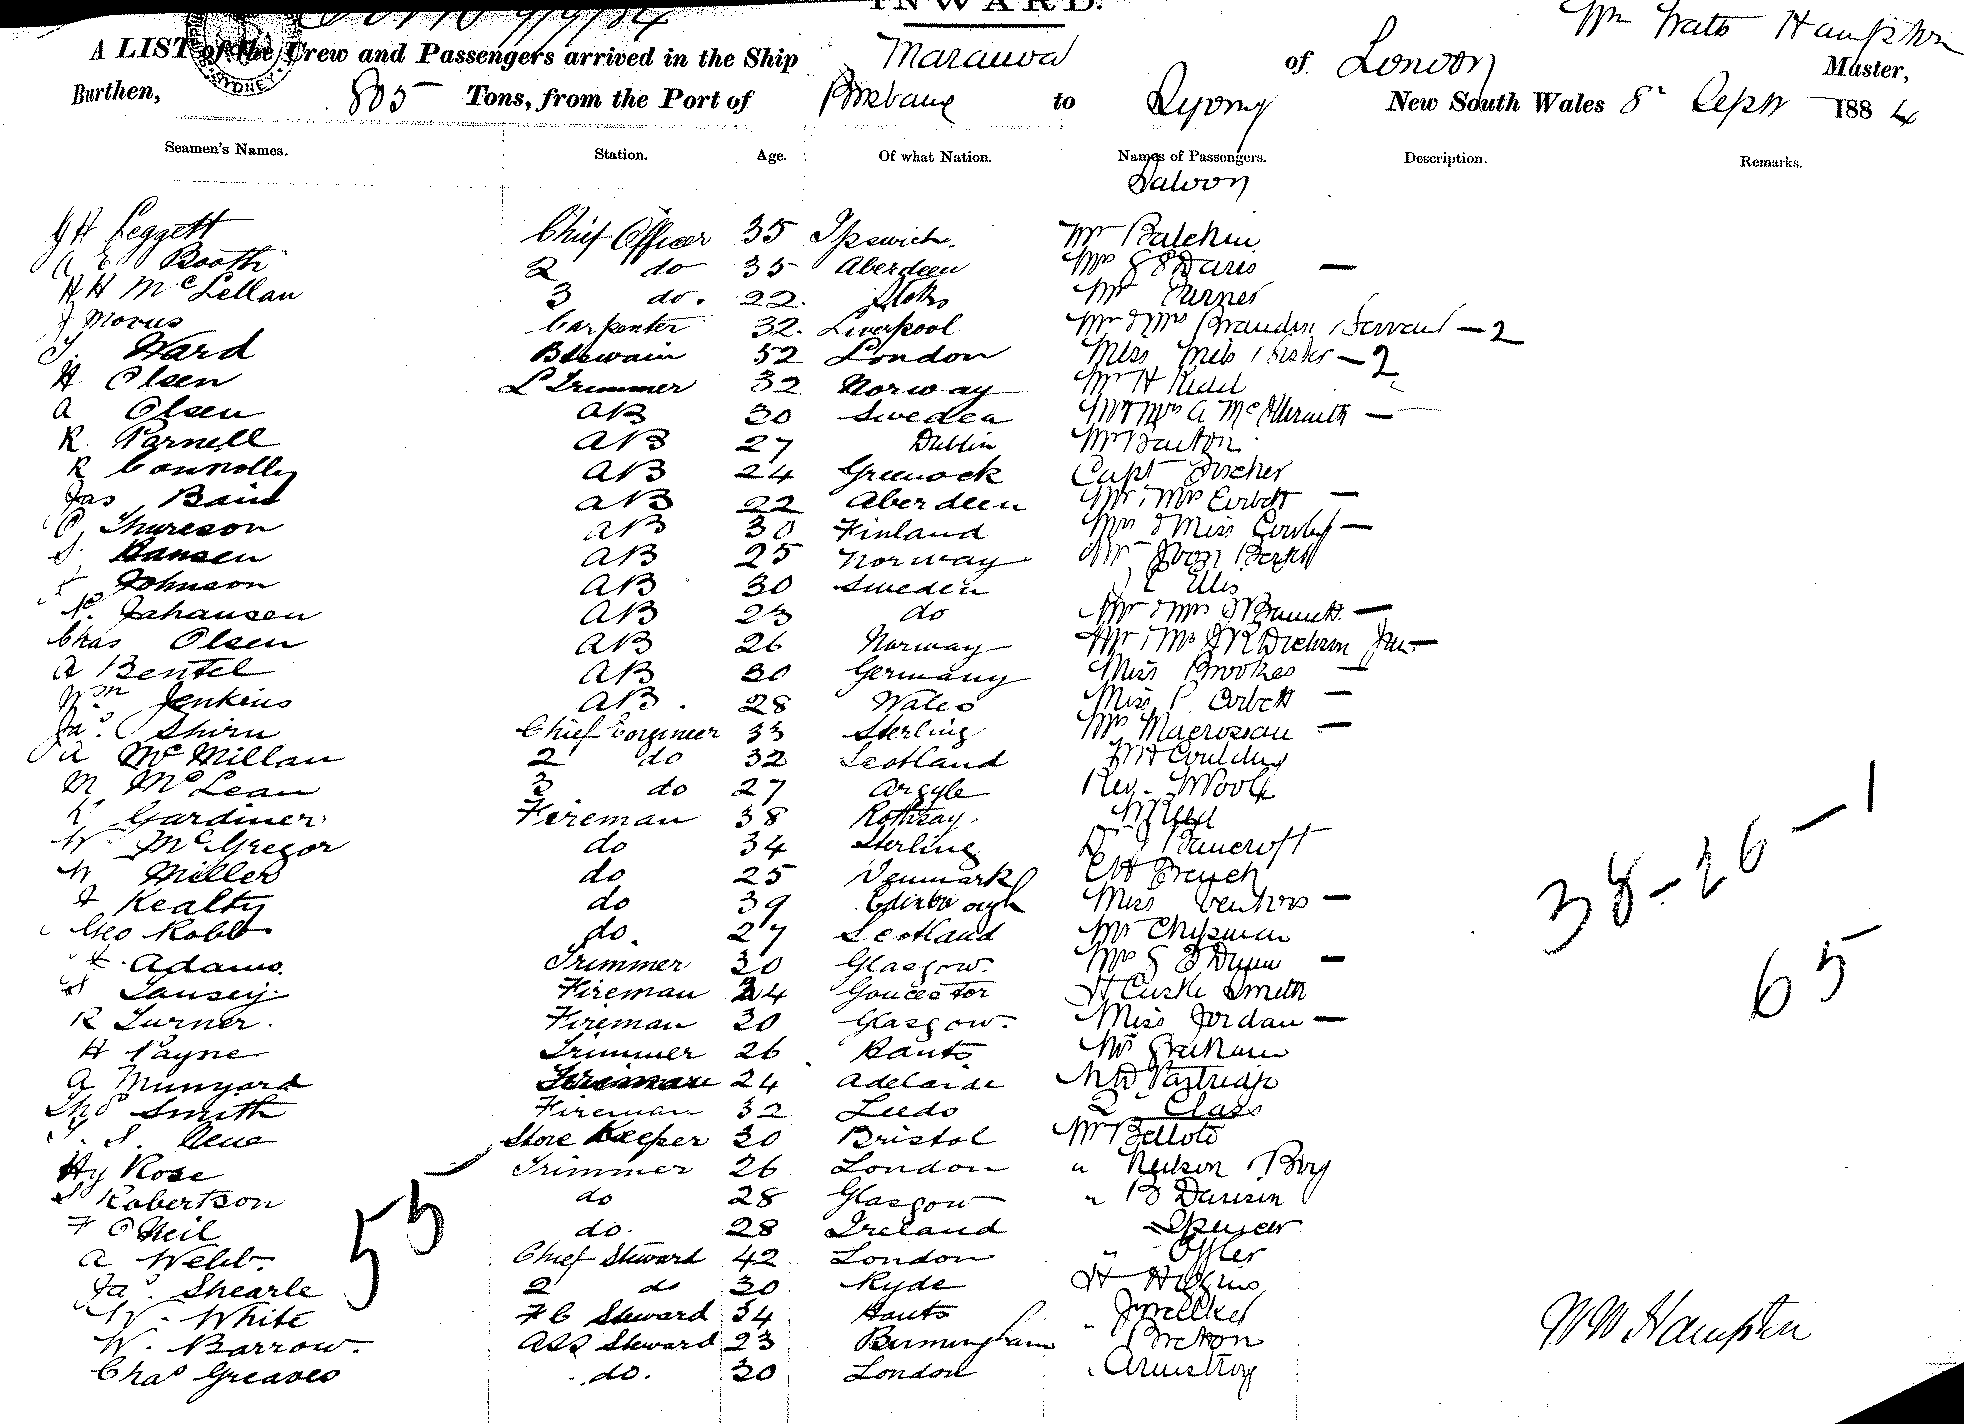 INWARD.
A LIST of the Crew and Passengers arrived in the Ship Marauva of London Wm Watts Hampton Master,
Burthen, 805 Tons, from the Port of Brisbane to Sydney New South Wales 8 Sept 1884
Seamen's Names. Station. Age. Of what Nation. Names of Passengers. Description. Remarks.
Saloon
Leggett Chief Officer 35 Ipswich. Mr Balchin
A E Booth 2 do 35 Aberdeen Mrs Davis —
H H McLellan 3 do. 22. Mr Turner
J Morus Carpenter 32. Liverpool Mr & Mrs Servant — 2
T. Ward Btswain 52 London Miss — 2
H Olsen L Trimmer 32 Norway Mr H
A Olsen AB 30 Sweden Mr & Mrs A McIlwraith —
R. Parnell AB 27 Dublin Mr Barton
R Connolly AB 24 Greenock Capt Fischer
Jas Baird AB 22 Aberdeen Mr & Mrs Corbett —
C. Thureson AB 30 Finland Mrs & Miss —
S. Hansen AB 25 Norway Mr
Johnson AB 30 Sweden Ellis
N. Jahansen AB 23 do Mr & Mrs —
Chas Olsen AB 26 Norway Mr & Mrs J R Dickson Jun —
A Bentel AB 30 Germany Miss Brookes —
Wm Jenkins AB. 28 Wales Miss P Corbett —
Jas. Shirn Chief Engineer 33 Sterling Mrs Macrossan —
A McMillan 2 do 32 Scotland Goulding
M McLean 3 do 27 Argyle Rev. Woolf
R Gardiner Fireman 38 Rothsay. Reed
W McGregor do 34 Sterling D J Bancroft
W Miller do 25 Denmark C H French
J Kealty do 39 Edinbrough Miss Ventnors —
Geo Robb do. 27 Scotland Mr Chipman
Adams. Trimmer 30 Glasgow. Mrs Dunn —
Tausey Fireman 24 Goucester H Curtis Smith
R Turner. Fireman 30 Glasgow. Miss Jordan —
H Payne Trimmer 26 Hants Mr Graham
A Munyard Fireman 24 Adelaide Partridge
Thos Smith Fireman 32 Leeds 2 Class
S. Store Keeper 30 Bristol Mr Bellote
Hy Rose Trimmer 26 London " Neilson Boy
S Robertson do 28 Glasgow " B Davison
F O Neil do. 28 Ireland Spencer
A Webb. Chief Steward 42 London Offler
Jas. Shearle 2 do 30 Ryde H Higgins
W. White F C Steward 34 Hants
W. Barrow. ASS Steward 23 Birmingham " Breton
Chas Greaves do. 30 London Armstrong
55
38 - 26 - 1
65
W W Hampton